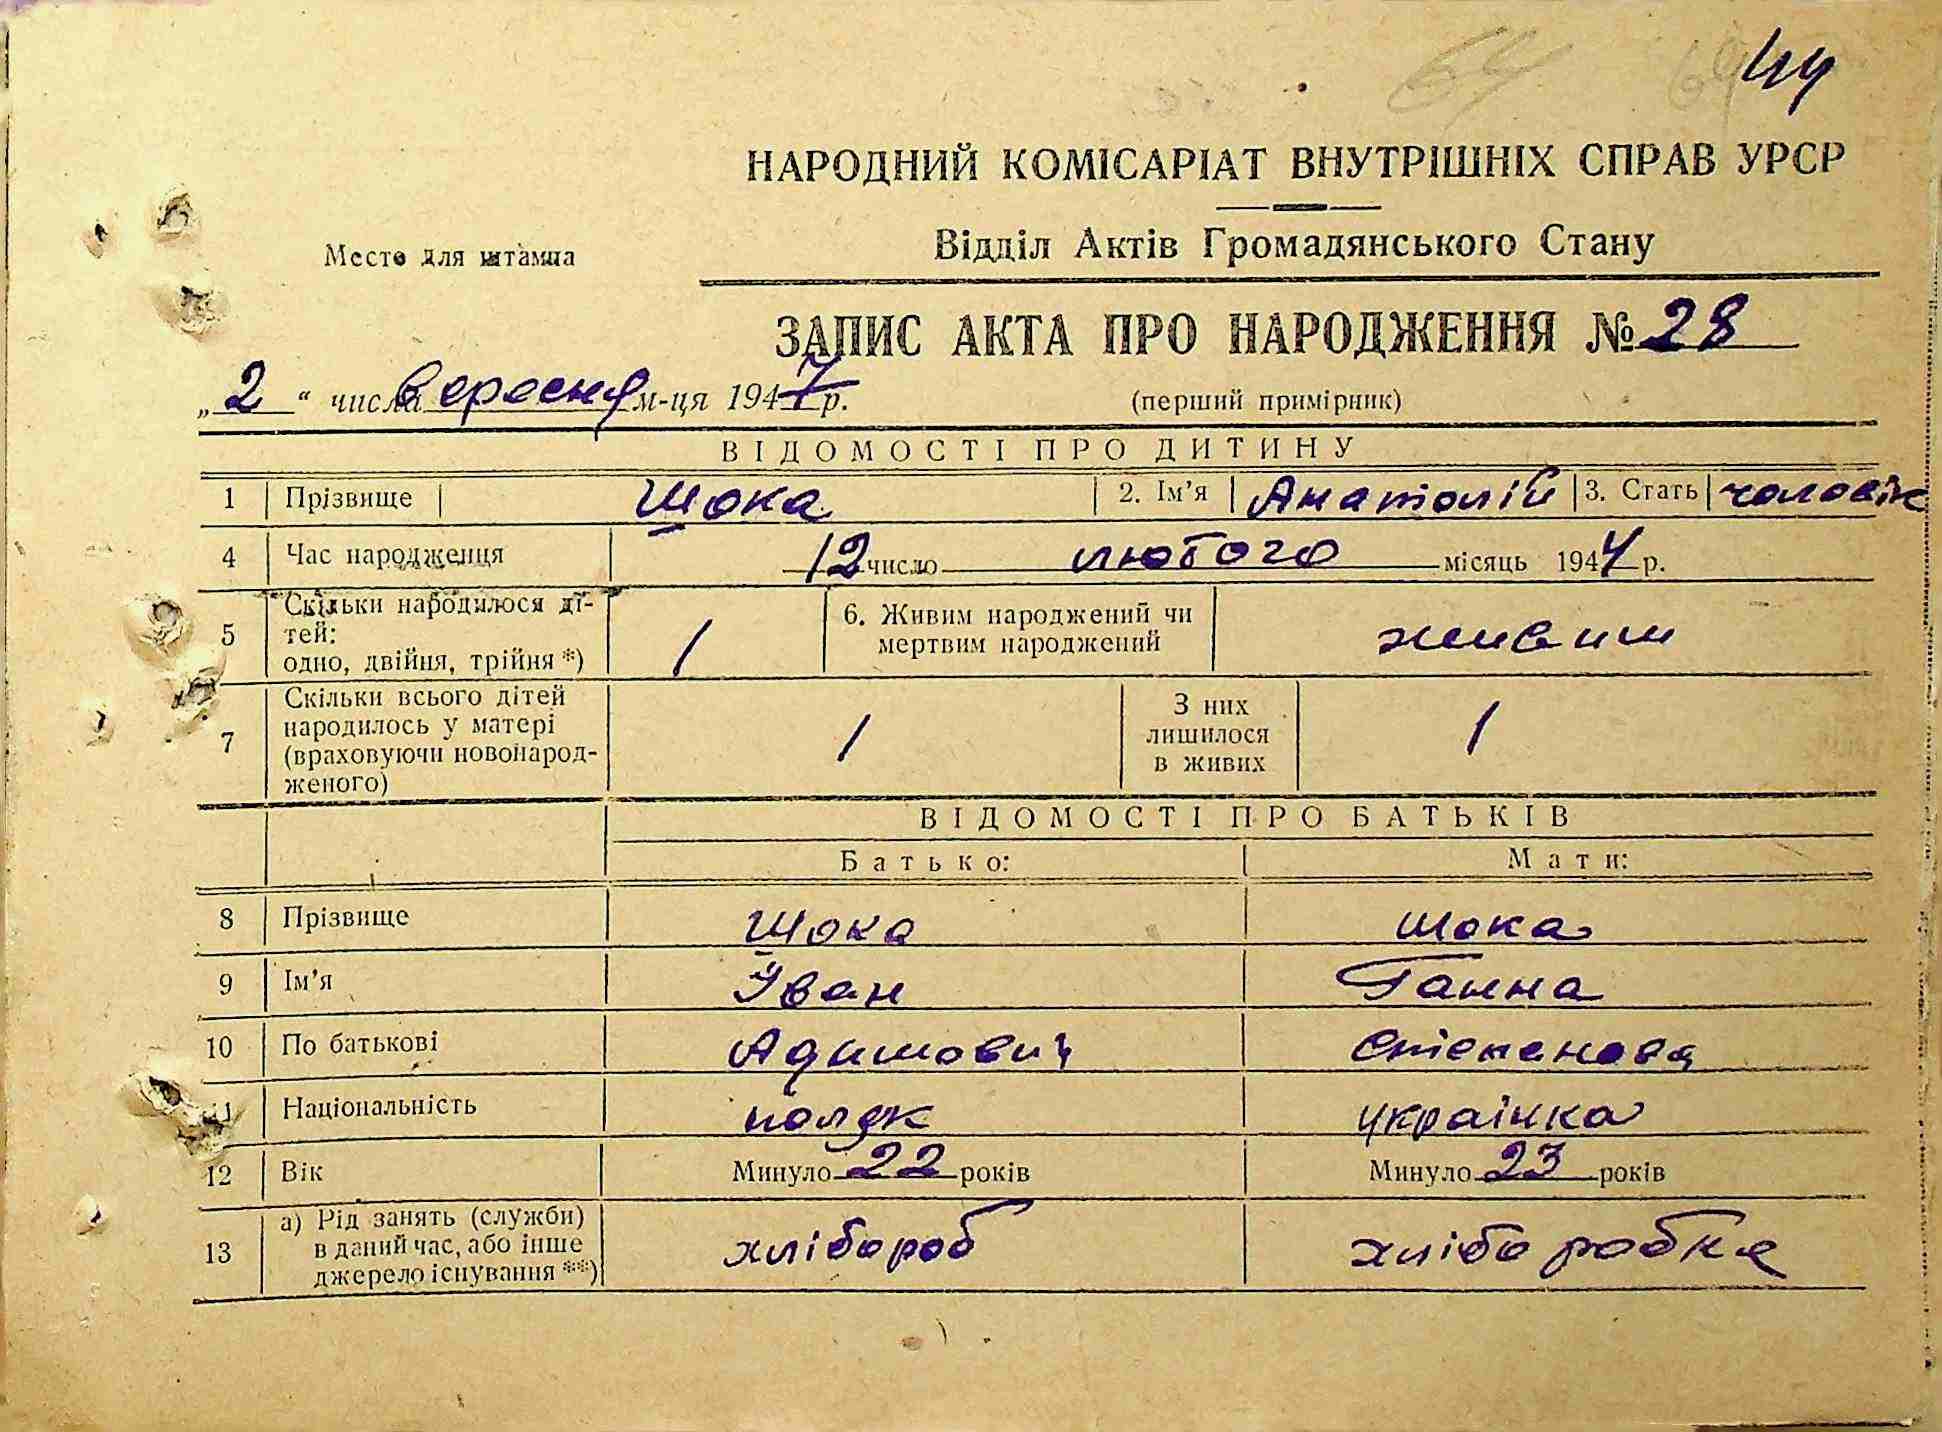 64 64 44
НАРОДНИЙ КОМІСАРІАТ ВНУТРІШНІХ СПРАВ УРСР
Место для штампа
Відділ Актів Громадянського Стану
ЗАПИС АКТА ПРО НАРОДЖЕННЯ № 28
„2“ числа вересня м-ця 1947 р. (перший примірник)
ВІДОМОСТІ ПРО ДИТИНУ
1 Прізвище Шока 2. Ім'я Анатолій 3. Стать чоловік
4 Час народження 12 число лютого місяць 1944 р.
5 Скільки народилося ді-
тей:
одно, двійня, трійня *) 1 6. Живим народжений чи
мертвим народжений живим
7 Скільки всього дітей
народилось у матері
(враховуючи новонарод-
женого) 1 З них
лишилося
в живих 1
ВІДОМОСТІ ПРО БАТЬКІВ
Батько: Мати:
8 Прізвище Шока Шока
9 Ім'я Іван Ганна
10 По батькові Адимович Степанова
11 Національність поляк українка
12 Вік Минуло 22 років Минуло 23 років
13 а) Рід занять (служби)
в даний час, або інше
джерело існування **) хлібороб хліборобка